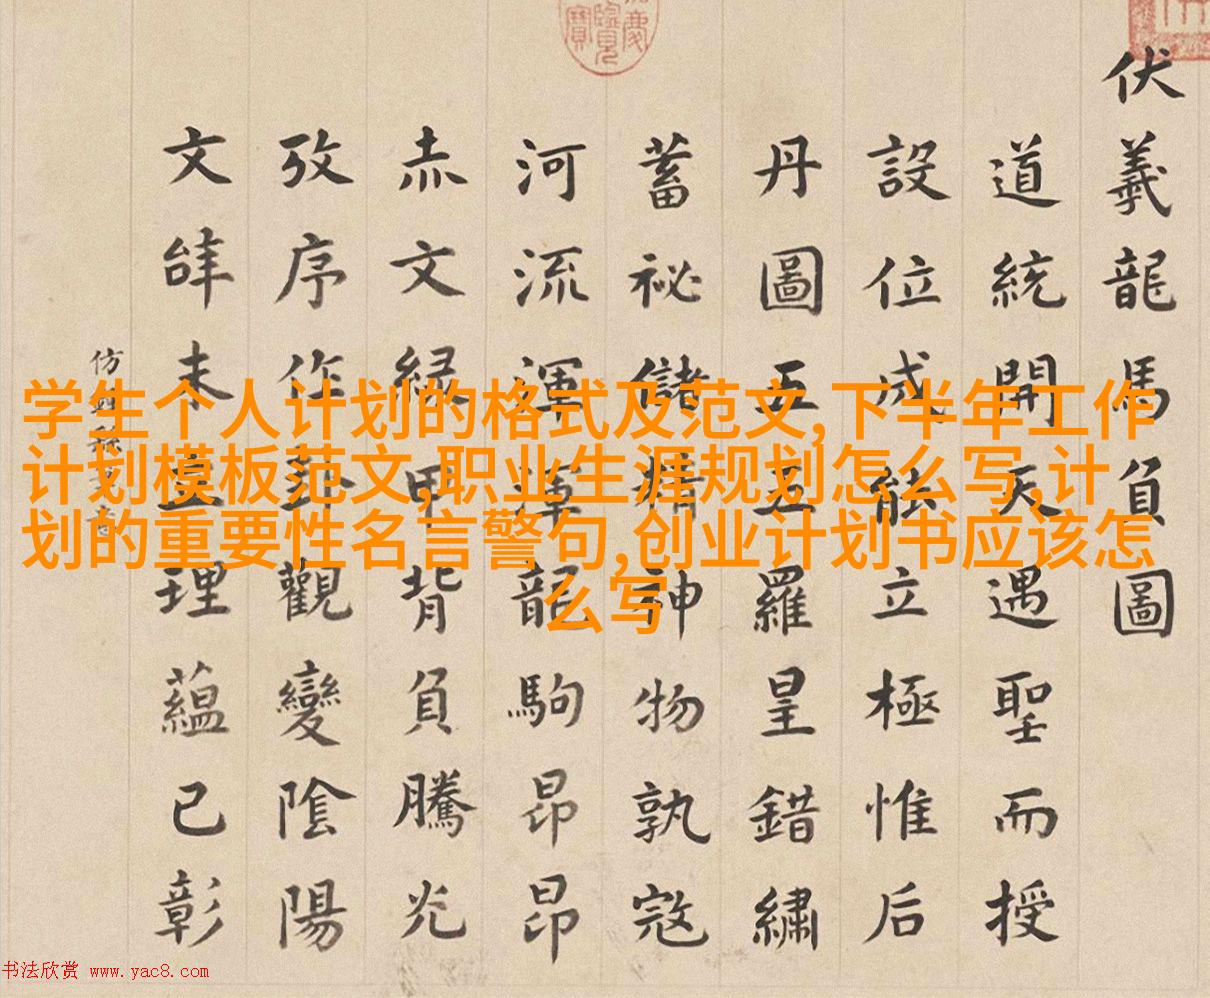 伏羲龍馬負圖
道統開天遇聖而授
設位成能立極惟后
丹圖五五羅皇錯繡
蓄祕儲精神物孰寇
河流渾渾龍駒昂昂
赤文緑甲背負騰光
攷序作卦觀變陰陽
文未宣理蘊已彰
仿
学生个人计划的格式及范文,下半年工作
计划模板范文,职业生涯规划怎么写,计
划的重要性名言警句,创业计划书应该怎
么写
书法欣赏 www.yac8.com